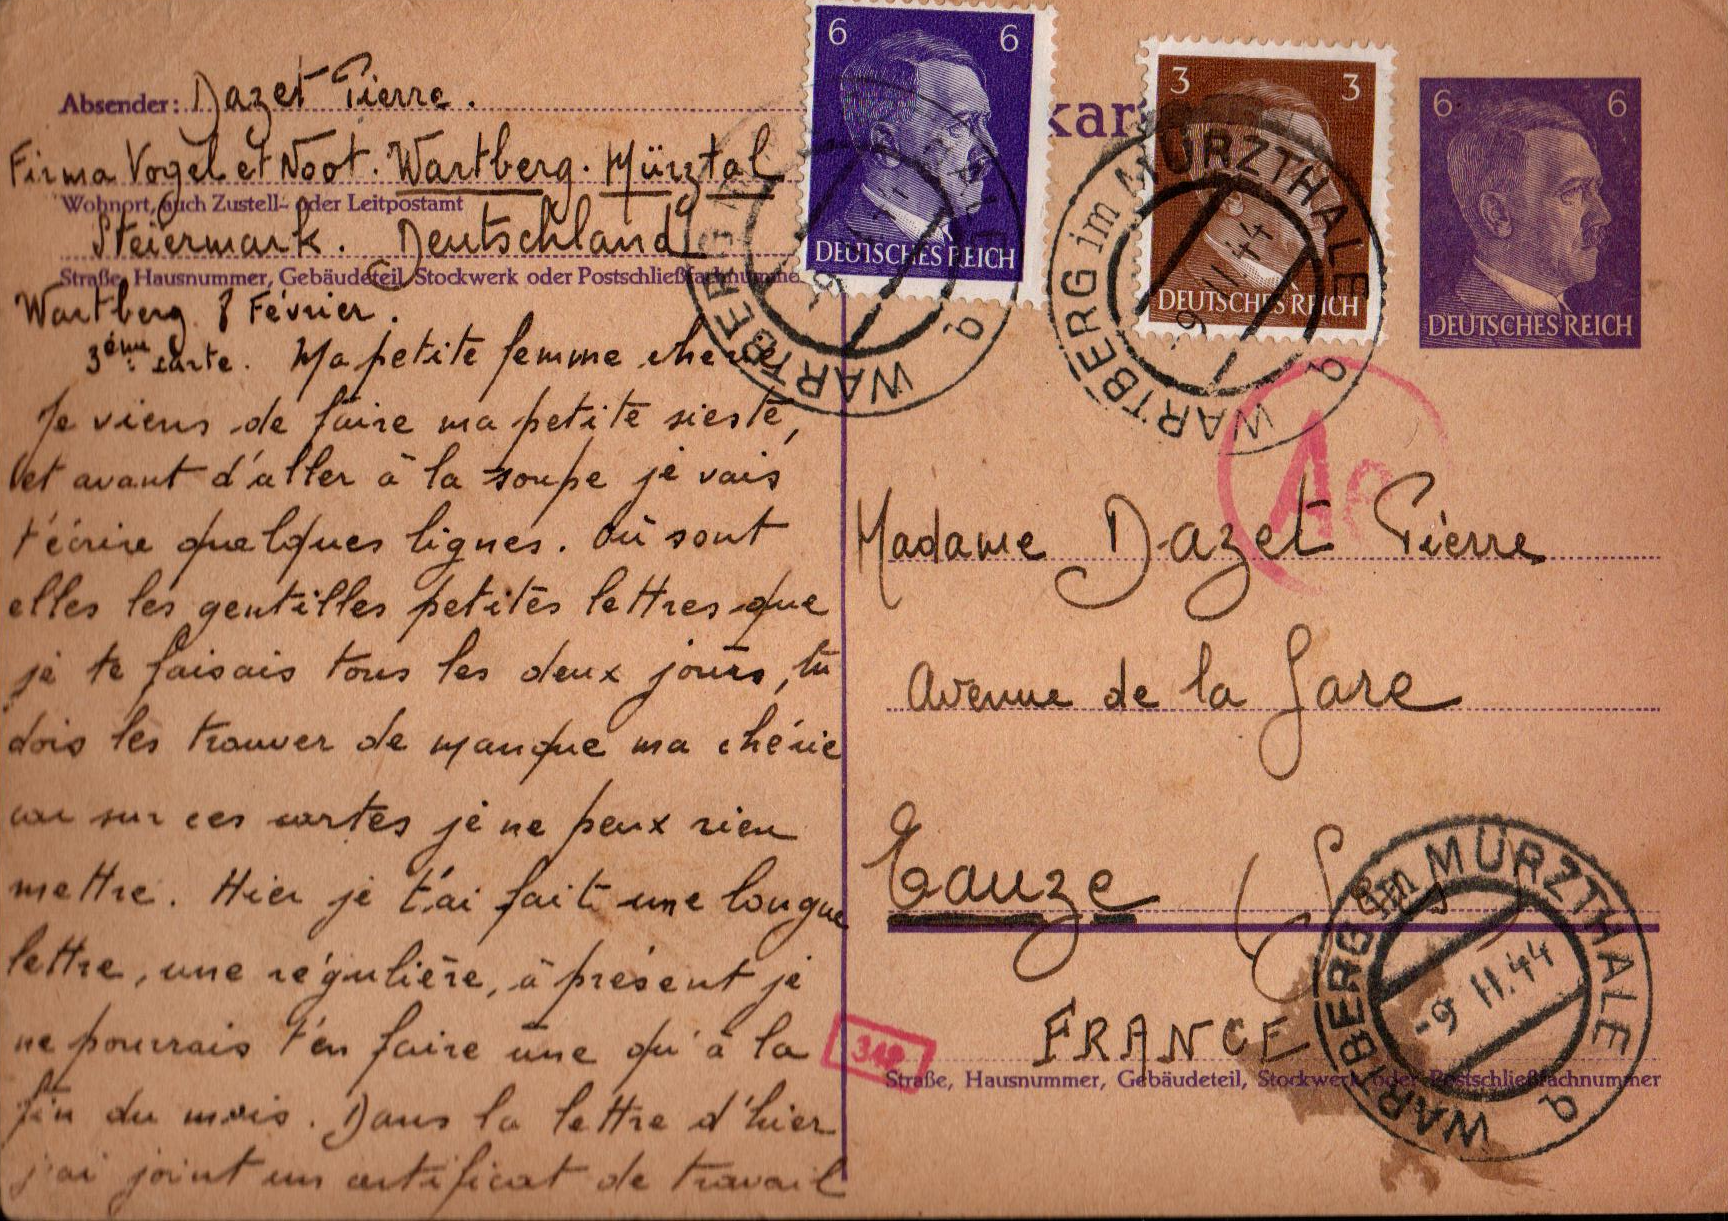 Absender: Dazet Pierre.
Firma Vogel et Noot. Wartberg. Mürztal
Wohnort, auch Zustell- oder Leitpostamt
Steiermark. Deutschland
Straße, Hausnummer, Gebäudeteil, Stockwerk oder Postschließfachnummer
Wartberg 8 Février.
3ème carte. Ma petite femme cherie
Je viens de faire ma petite sieste,
et avant d'aller à la soupe je vais
t'écrire quelques lignes. Où sont
elles les gentilles petites lettres que
je te faisais tous les deux jours, tu
dois les trouver de manque ma chérie
car sur ces cartes je ne peux rien
mettre. Hier je t'ai fait une longue
lettre, une régulière, à présent je
ne pourrais t'en faire une qu'à la
fin du mois. Dans la lettre d'hier
j'ai joint un certificat de travail
6 6
DEUTSCHES REICH
kar
3 3
DEUTSCHES REICH
6 6
DEUTSCHES REICH
WARTBERG im MÜRZTHALE
WARTBERG im MÜRZTHALE
-9.II.44
q
Madame Dazet Pierre
Avenue de la Gare
Eauze (Gers)
FRANCE
Straße, Hausnummer, Gebäudeteil, Stockwerk oder Postschließfachnummer
WARTBERG im MÜRZTHALE
-9.II.44
q